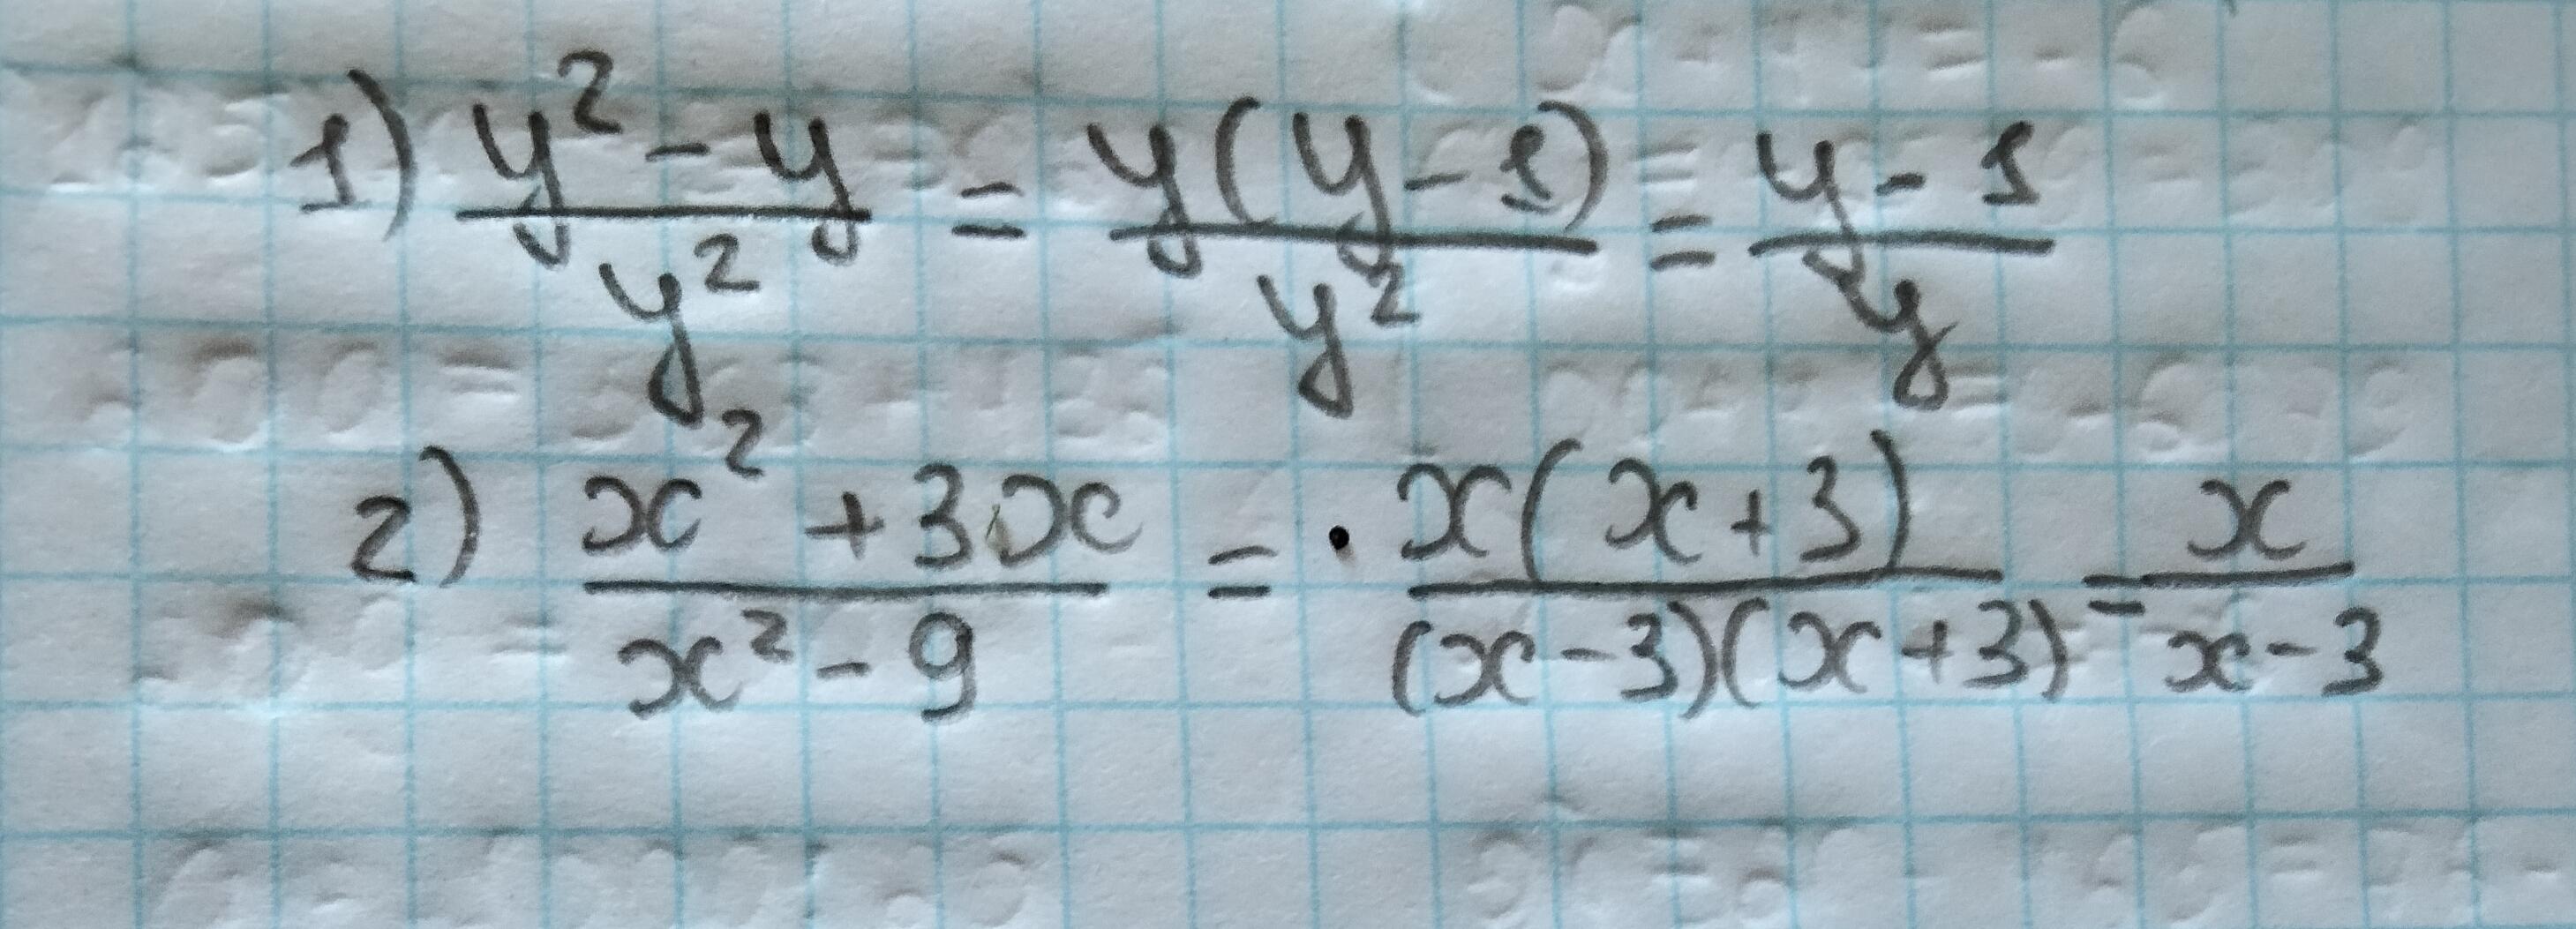 1) (y² - y)/y² = y(y - 1)/y² = (y - 1)/y
2) (x² + 3x)/(x² - 9) = x(x + 3)/((x - 3)(x + 3)) = x/(x - 3)